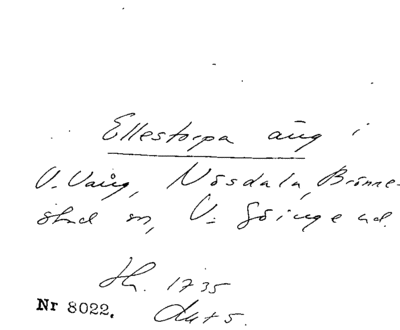 Ellestorpa äng i
V. Vång, Nösdala, Brönne-
stad sn, V. Göinge hd.
Hs. 1735
Nr 8022.